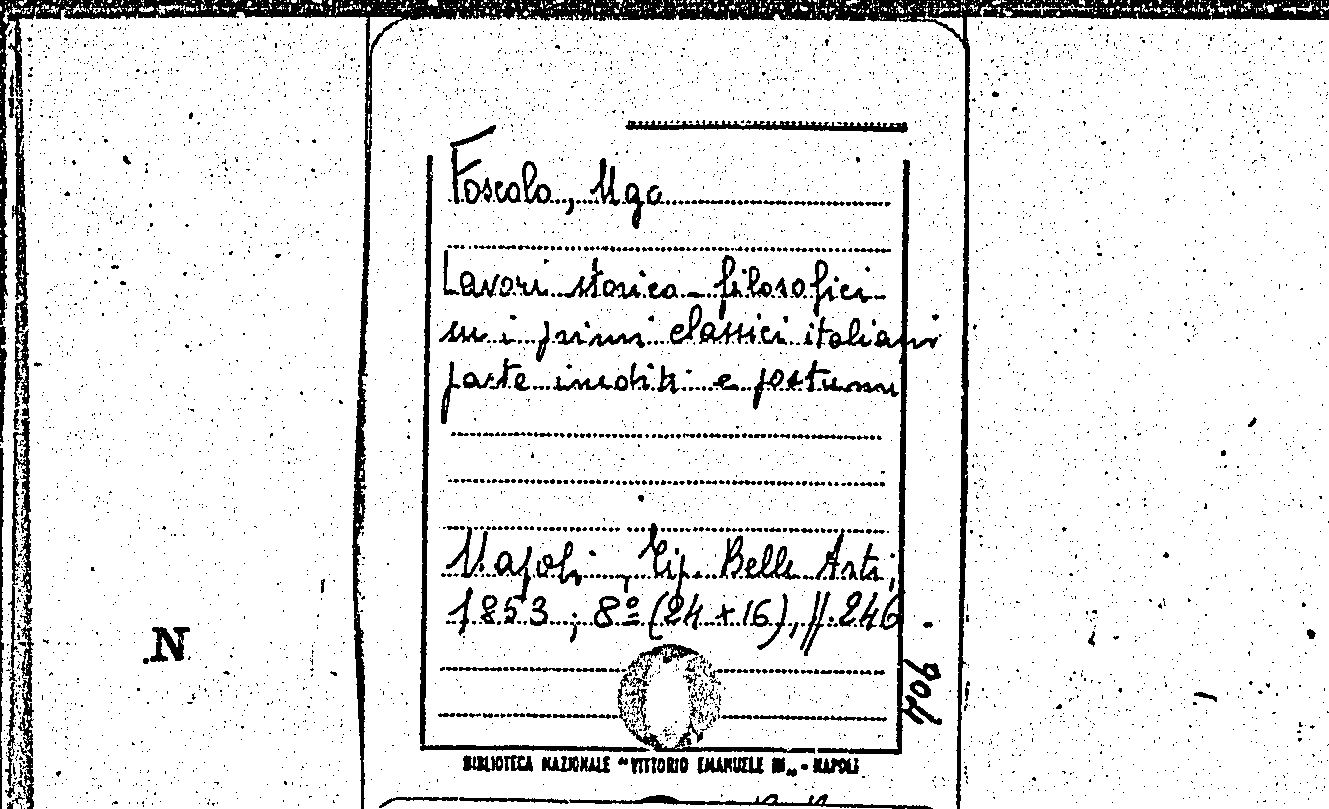 Foscolo, Ugo
Lavori storico-filosofici
su i primi classici italiani
parte inediti e postumi
Napoli, Tip. Belle Arti,
1853; 8º (24 x 16), pp. 246.
904
N
BIBLIOTECA NAZIONALE "VITTORIO EMANUELE III„ - NAPOLI